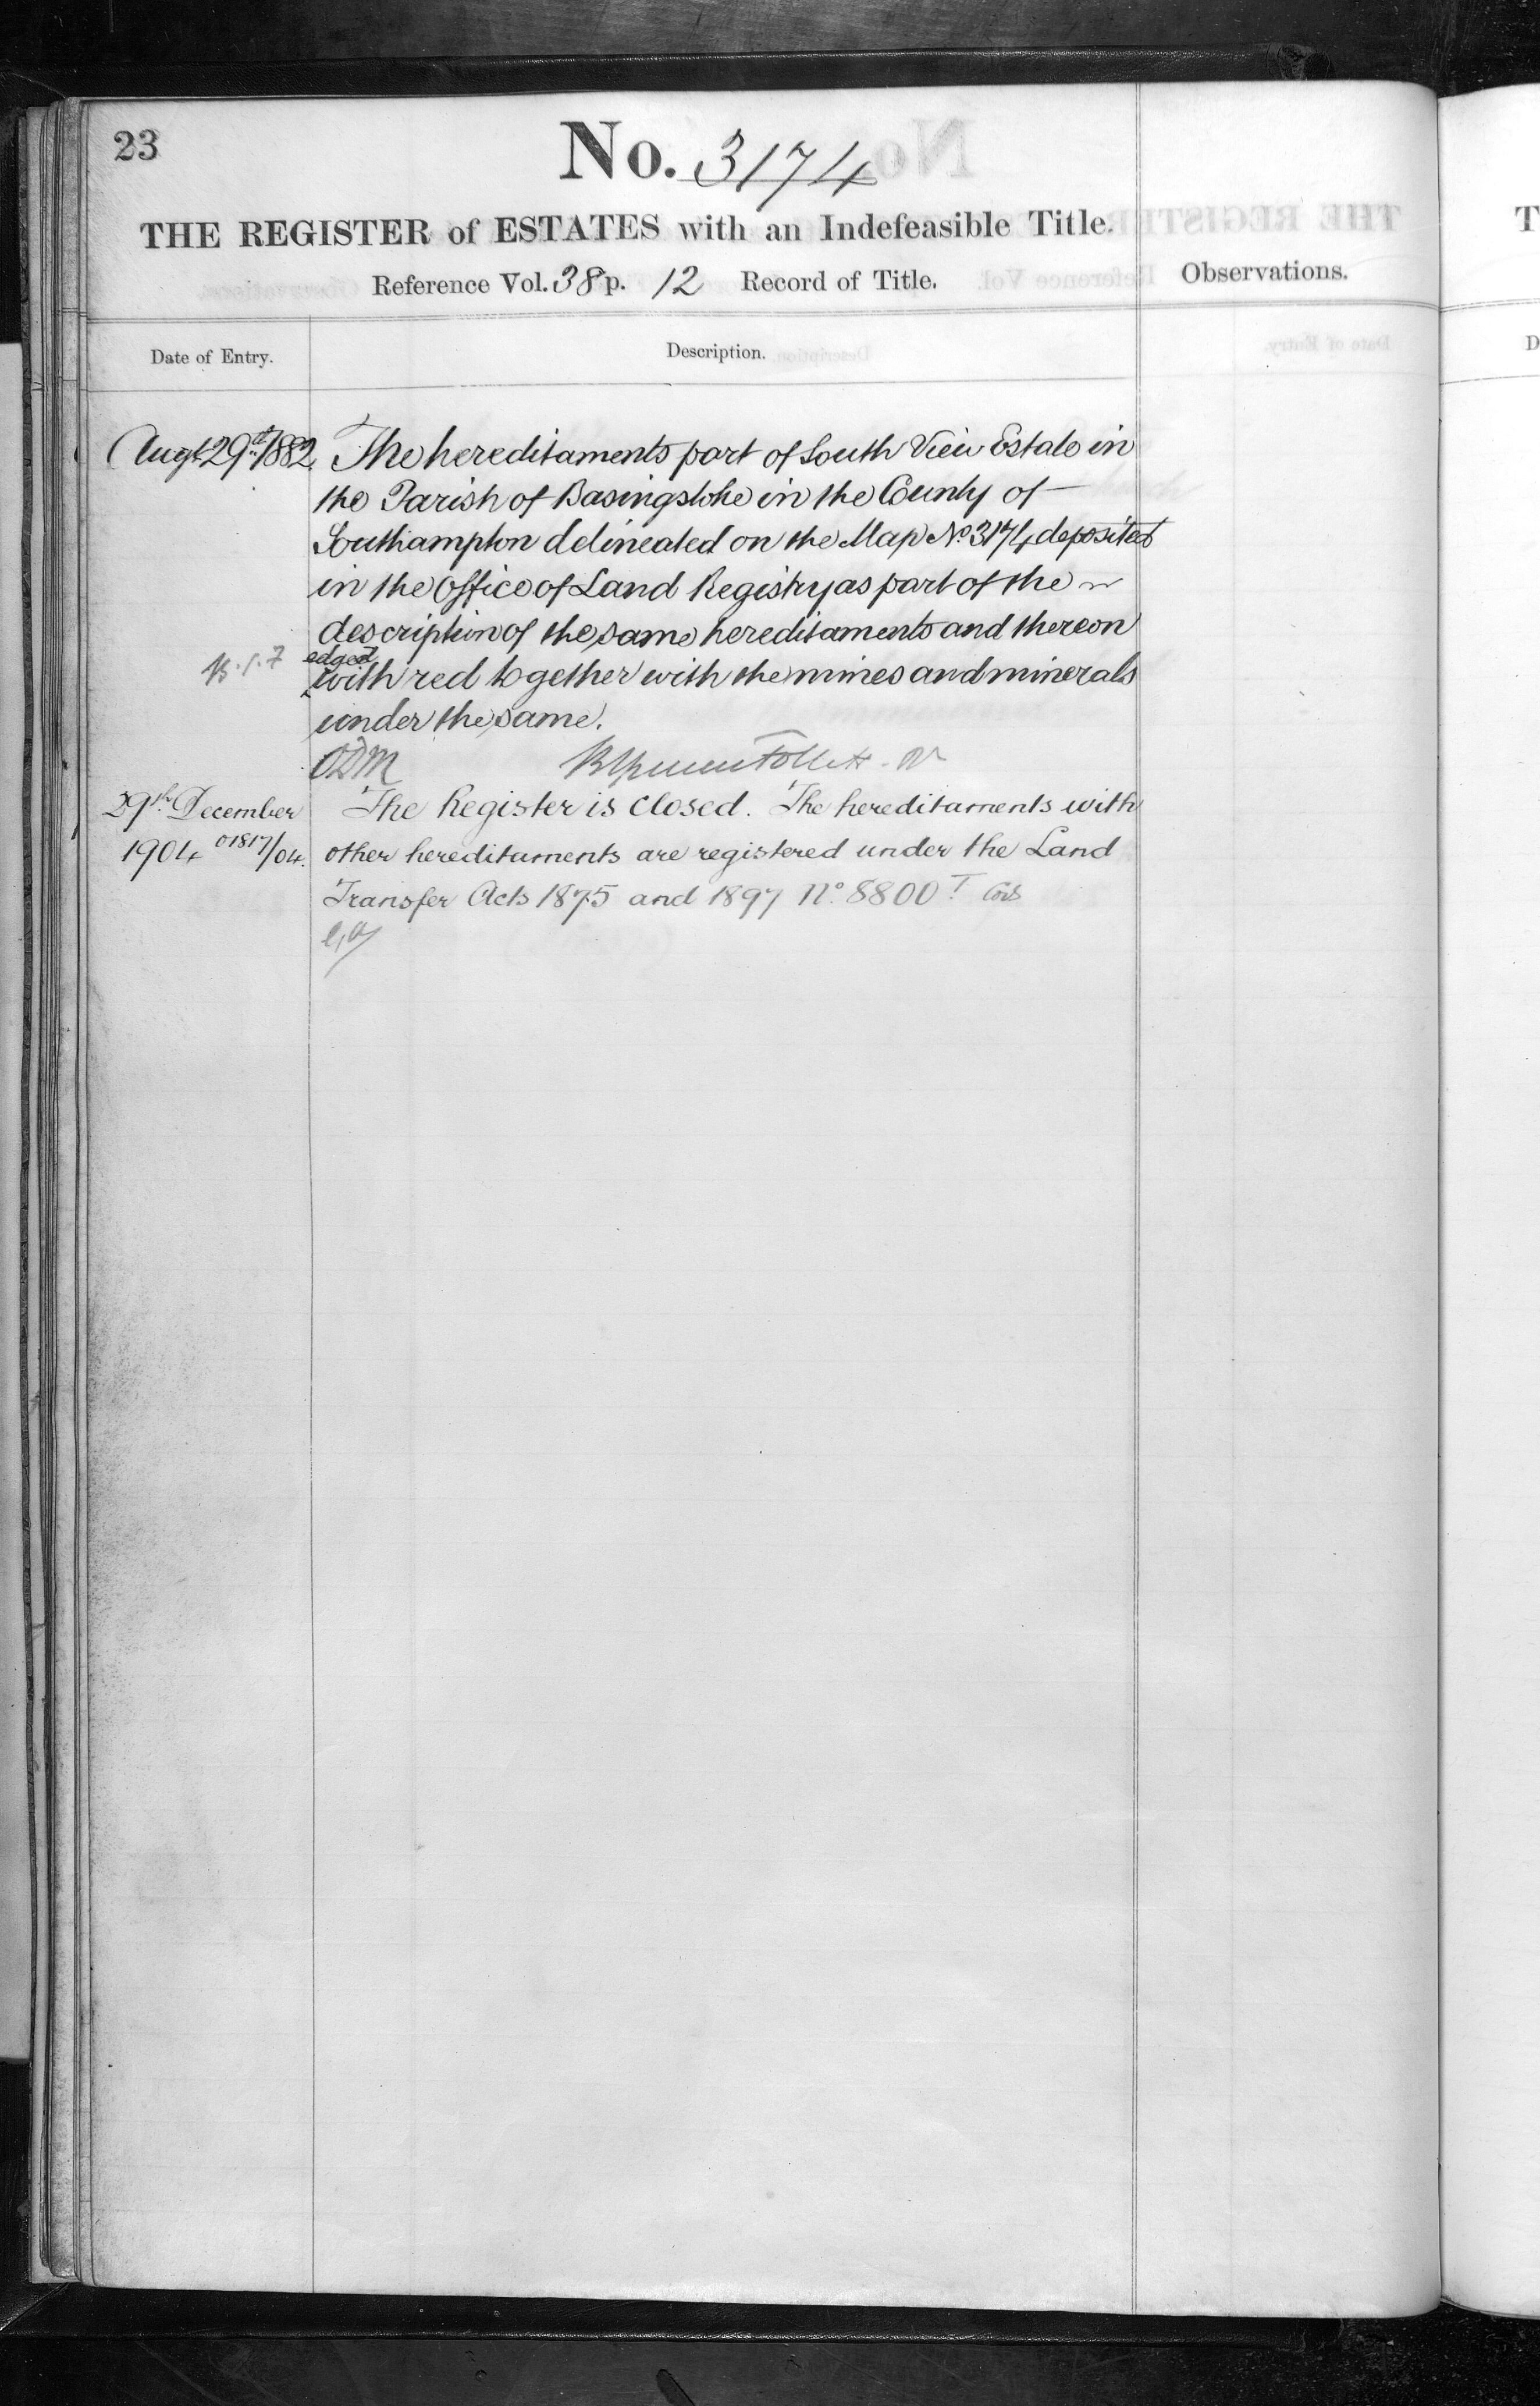 23
No. 3174
THE REGISTER of ESTATES with an Indefeasible Title.
Reference Vol. 38 p. 12 Record of Title.
Observations.
Date of Entry.
Description.
Augt 29th 1882. The hereditaments part of South View Estate in
the Parish of Basingstoke in the County of
Southampton delineated on the Map No. 3174 deposited
in the Office of Land Registry as part of the
description of the same hereditaments and thereon
edged
with red together with the mines and minerals
under the same.
ODM Follett
29th December The Register is closed. The hereditaments with
1904 01817/04. other hereditaments are registered under the Land
Transfer Acts 1875 and 1897 No. 8800 T